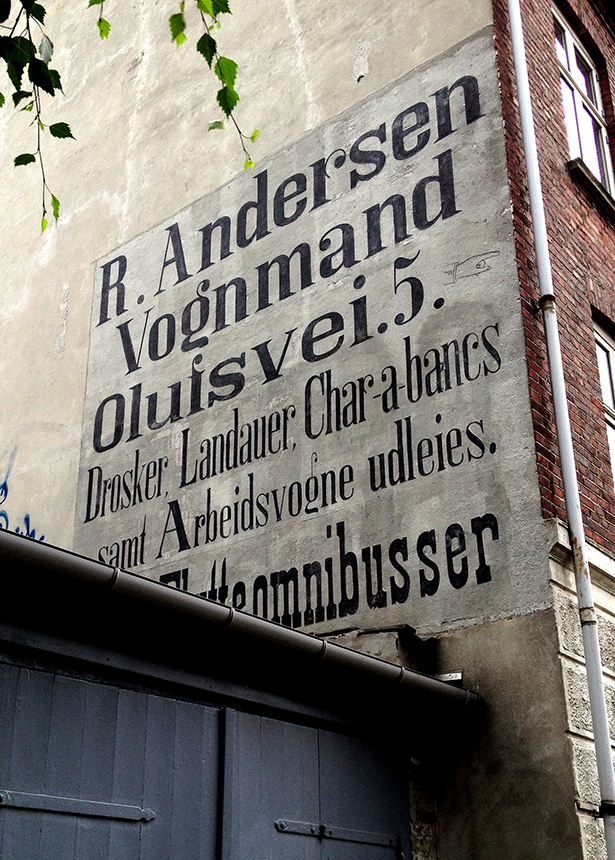 R. Andersen
Vognmand
Olufsvei. 5.
Drosker, Landauer, Char-a-bancs
samt Arbeidsvogne udleies.
Flytteomnibusser